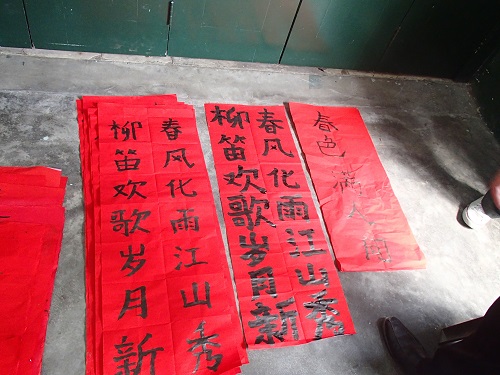 春色满人间
春风化雨江山秀
柳笛欢歌岁月新
春风化雨江山秀
柳笛欢歌岁月新